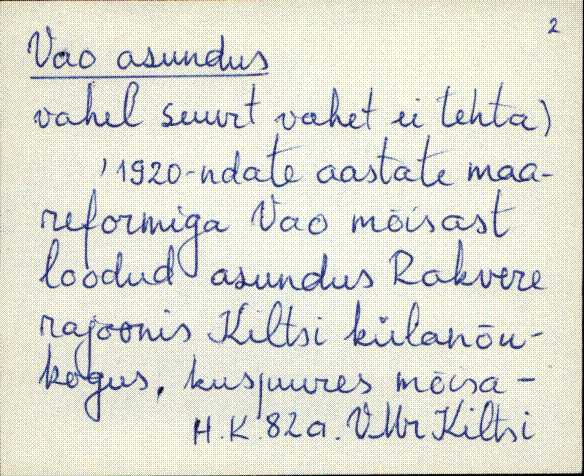 2
Vao asundus
vahel suurt vahet ei tehta)
'1920-ndate aastate maa-
reformiga Vao mõisast
loodud asundus Rakvere
rajoonis Kiltsi külanõu-
kogus, kusjuures mõisa-
H.K.82a. VMr Kiltsi